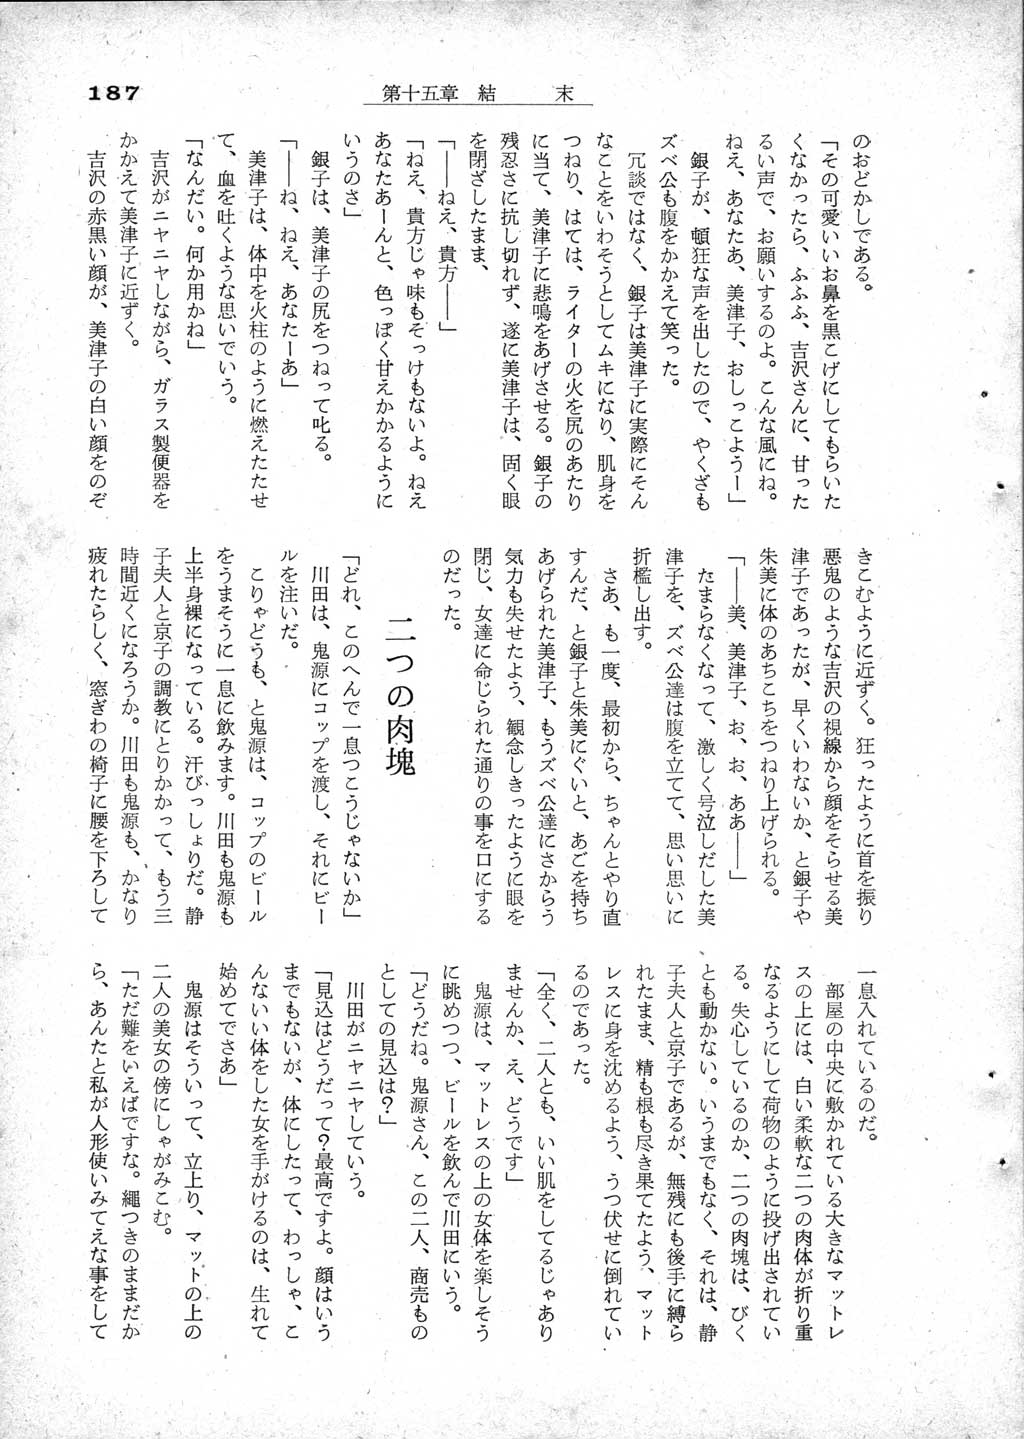 187
第十五章 結 末
のおどかしである。
「その可愛いいお鼻を黒こげにしてもらいた
くなかったら、ふふふ、吉沢さんに、甘った
るい声で、お願いするのよ。こんな風にね。
ねえ、あなたあ、美津子、おしっこようー」
銀子が、頓狂な声を出したので、やくざも
ズベ公も腹をかかえて笑った。
冗談ではなく、銀子は美津子に実際にそん
なことをいわそうとしてムキになり、肌身を
つねり、はては、ライターの火を尻のあたり
に当て、美津子に悲鳴をあげさせる。銀子の
残忍さに抗し切れず、遂に美津子は、固く眼
を閉ざしたまま、
「――ねえ、貴方――」
「ねえ、貴方じゃ味もそっけもないよ。ねえ
あなたあーんと、色っぽく甘えかかるように
いうのさ」
銀子は、美津子の尻をつねって叱る。
「――ね、ねえ、あなたーあ」
美津子は、体中を火柱のように燃えたたせ
て、血を吐くような思いでいう。
「なんだい。何か用かね」
吉沢がニヤニヤしながら、ガラス製便器を
かかえて美津子に近ずく。
吉沢の赤黒い顔が、美津子の白い顔をのぞ
きこむように近ずく。狂ったように首を振り
悪鬼のような吉沢の視線から顔をそらせる美
津子であったが、早くいわないか、と銀子や
朱美に体のあちこちをつねり上げられる。
「――美、美津子、お、お、ああ――」
たまらなくなって、激しく号泣しだした美
津子を、ズベ公達は腹を立てて、思い思いに
折檻し出す。
さあ、も一度、最初から、ちゃんとやり直
すんだ、と銀子と朱美にぐいと、あごを持ち
あげられた美津子、もうズベ公達にさからう
気力も失せたよう、観念しきったように眼を
閉じ、女達に命じられた通りの事を口にする
のだった。
二つの肉塊
「どれ、このへんで一息つこうじゃないか」
川田は、鬼源にコップを渡し、それにビー
ルを注いだ。
こりゃどうも、と鬼源は、コップのビール
をうまそうに一息に飲みます。川田も鬼源も
上半身裸になっている。汗びっしょりだ。静
子夫人と京子の調教にとりかかって、もう三
時間近くになろうか。川田も鬼源も、かなり
疲れたらしく、窓ぎわの椅子に腰を下ろして
一息入れているのだ。
部屋の中央に敷かれている大きなマットレ
スの上には、白い柔軟な二つの肉体が折り重
なるようにして荷物のように投げ出されてい
る。失心しているのか、二つの肉塊は、びく
とも動かない。いうまでもなく、それは、静
子夫人と京子であるが、無残にも後手に縛ら
れたまま、精も根も尽き果てたよう、マット
レスに身を沈めるよう、うつ伏せに倒れてい
るのであった。
「全く、二人とも、いい肌をしてるじゃあり
ませんか、え、どうです」
鬼源は、マットレスの上の女体を楽しそう
に眺めつつ、ビールを飲んで川田にいう。
「どうだね。鬼源さん、この二人、商売もの
としての見込は？」
川田がニヤニヤしていう。
「見込はどうだって？最高ですよ。顔はいう
までもないが、体にしたって、わっしゃ、こ
んないい体をした女を手がけるのは、生れて
始めてでさあ」
鬼源はそういって、立上り、マットの上の
二人の美女の傍にしゃがみこむ。
「ただ難をいえばですな。縄つきのままだか
ら、あんたと私が人形使いみてえな事をして